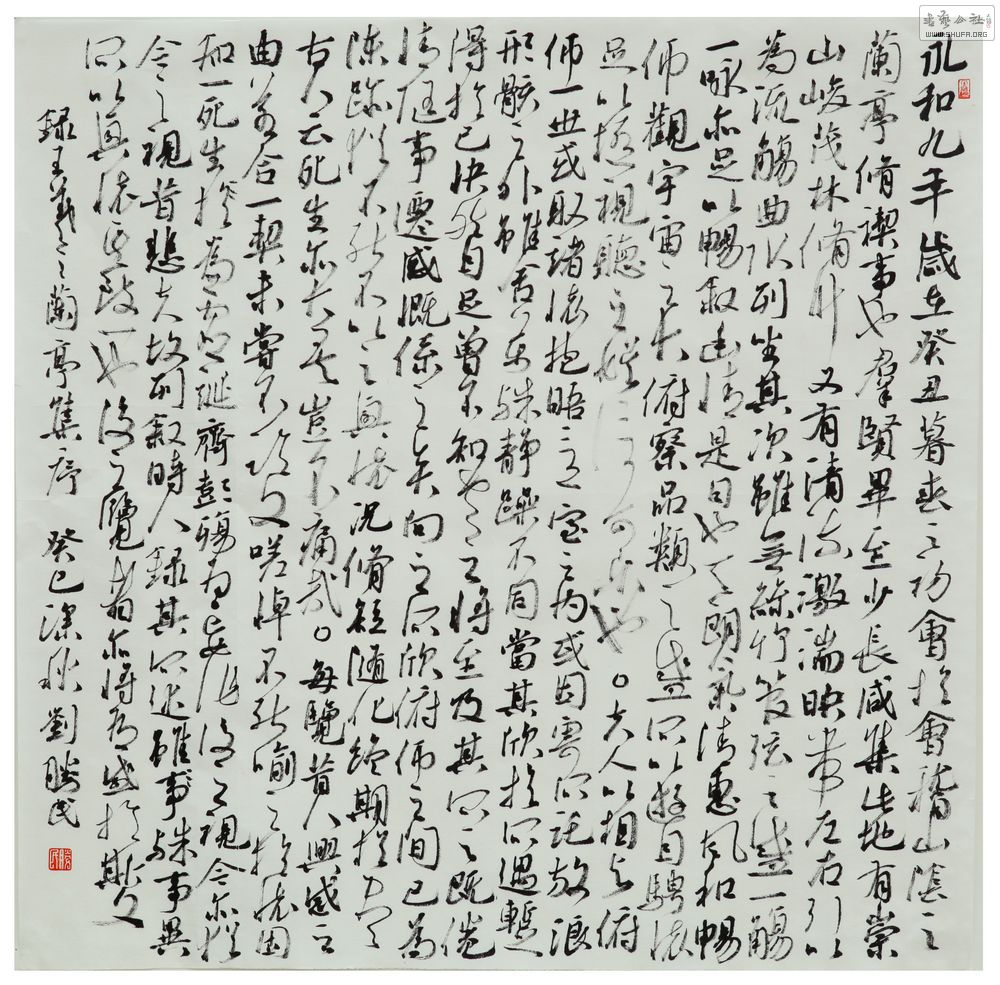 永和九年歲在癸丑暮春之初會於會稽山陰之
蘭亭脩禊事也群賢畢至少長咸集此地有崇
山峻茂林脩竹又有清流激湍映帶左右引以
為流觴曲水列坐其次雖無絲竹管弦之盛一觴
一詠亦足以暢敘幽情是日也天朗氣清惠風和暢
仰觀宇宙之大俯察品類之盛所以遊目騁懷
足以極視聽之娛信可樂也。夫人之相與俯
仰一世或取諸懷抱晤言一室之內或因寄所託放浪
形骸之外雖取舍不殊靜躁不同當其欣於所遇暫
得於己快然自足曾不知老之將至及其所之既倦
情隨事遷感慨係之矣向之所欣俯仰之間已為
陳跡猶不能不以之興懷況脩短隨化終期於盡
古人云死生亦大矣豈不痛哉。每覽昔人興感之
由若合一契未嘗不臨文嗟悼不能喻之於懷固
知一死生於為虛誕齊彭殤為妄作後之視今亦猶
今之視昔悲夫故列敘時人錄其所述雖事殊事異
所以興懷其致一也後之覽者亦將有感於斯文
錄王羲之蘭亭集序 癸巳深秋劉勝民
書藝公社
WWW.SHUFA.ORG